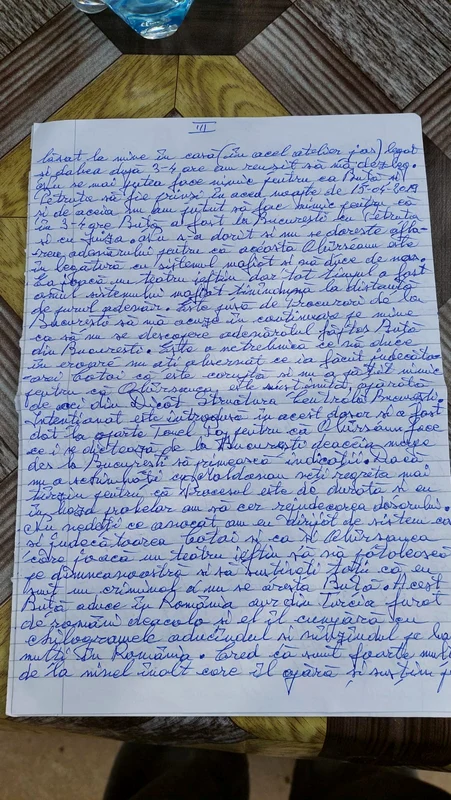 III
lăsat la mine în casă (în acel atelier jos) legat
și dabea după 3-4 ore am reușit să mă dezleg.
Nu se mai putea face nimic pentru ca Buță și
Petruța să fie prinși în acea noapte de 15-04-2019
și de aceia nu am putut să fac nimic pentru că
în 3-4 ore Buță a fost la București cu Petruța
și cu Luiza. Nu s-a dorit și nu se dorește afla-
rea adevărului pentru că aceasta Obîrseanu este
în legătură cu sistemul mafiot și vă duce de nas.
Ea joacă un teatru ieftin dar tot timpul a fost
omul sistemului mafiot ținîndumă la distanță
de jurul adevăr. Este pusă de Procurori de la
București să mă acuze în continuare pe mine
ca să nu se descopere adevăratul făptaș Buță
din București. Este o
arei Botai că este coruptă și nu a pățit nimic
pentru că Obîrsanca este susținută, apărată
de aci din Diicot Structura Centrală București.
Intenționat este introdusă în acest dosar și a fost
dat la o parte
ce i se dictează de la București deaceia merge
des la București să primească indicații. Dacă
nu o schimbați cu Moldovan veți regreta mai
tîrziu pentru că Procesul este de durată și eu
în baza probelor am să cer rejudecarea dosarului.
Nu vedeți ce avocat am eu dirijat de sistem ca
și judecătoarea Botai și ca și Obîrsanca
care joacă un teatru ieftin să vă potolească
pe dumneavoastră și să susțineți toți că eu
sunt un criminal a nu se aresta Buță. Acest
Buță aduce în România aur din Turcia furat
de români deacolo și el îl cumpăra cu
chilogramele aducîndul și vînzîndul pe bani
mulți în România. Cred că sunt foarte mulți
de la nivel înalt care îl apără și susțin pe